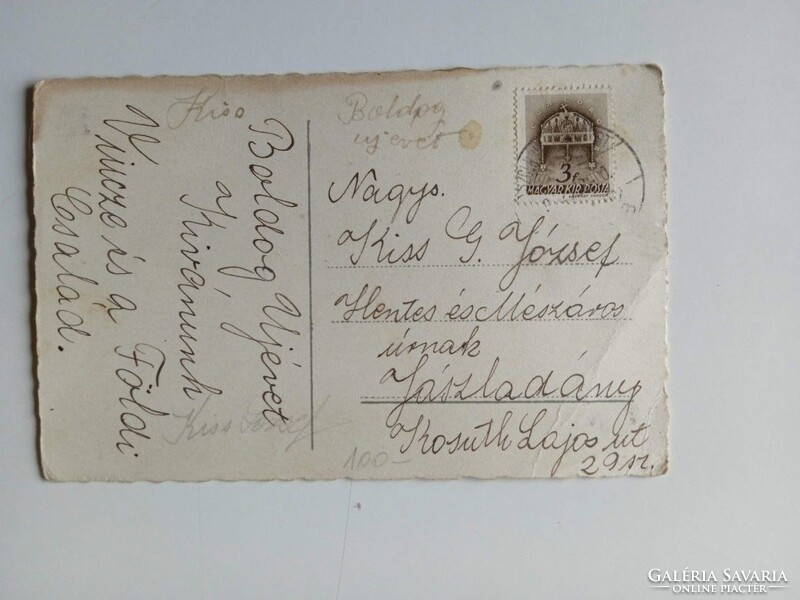 Kiss
Boldog Ujévet
Kivánunk
Vincze és a Földi
Család.
Kiss József
Boldog
ujévet
3f
MAGYAR KIR. POSTA
Nagys.
Kiss G. József
Hentes és Mészáros
úrnak
Jászladány
Kosuth Lajos ut
29 sz.
100-
GALÉRIA SAVARIA
ONLINE PIACTÉR